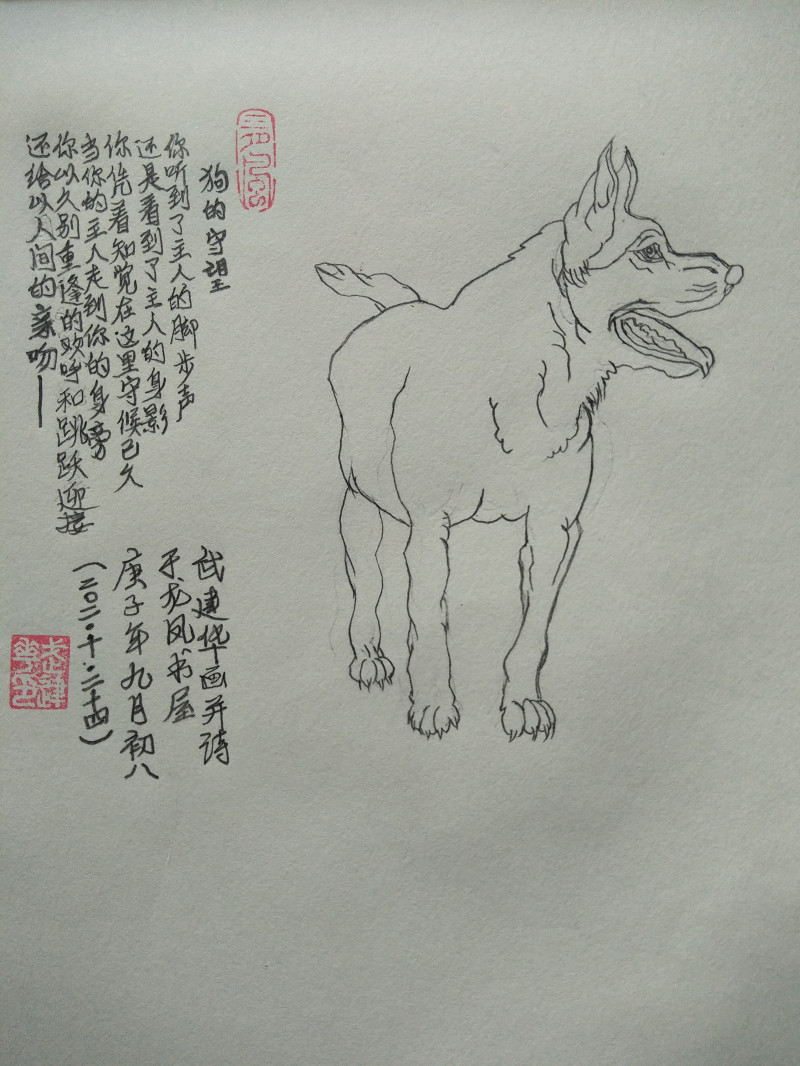 狗的守望
你听到了主人的脚步声
还是看到了主人的身影
你凭着知觉在这里守候已久
当你的主人走到你的身旁
你以久别重逢的欢呼和跳跃迎接
还给以人间的亲吻——
武建华画并诗
于龙凤书屋
庚子年九月初八
(二〇二〇·十·二十四)